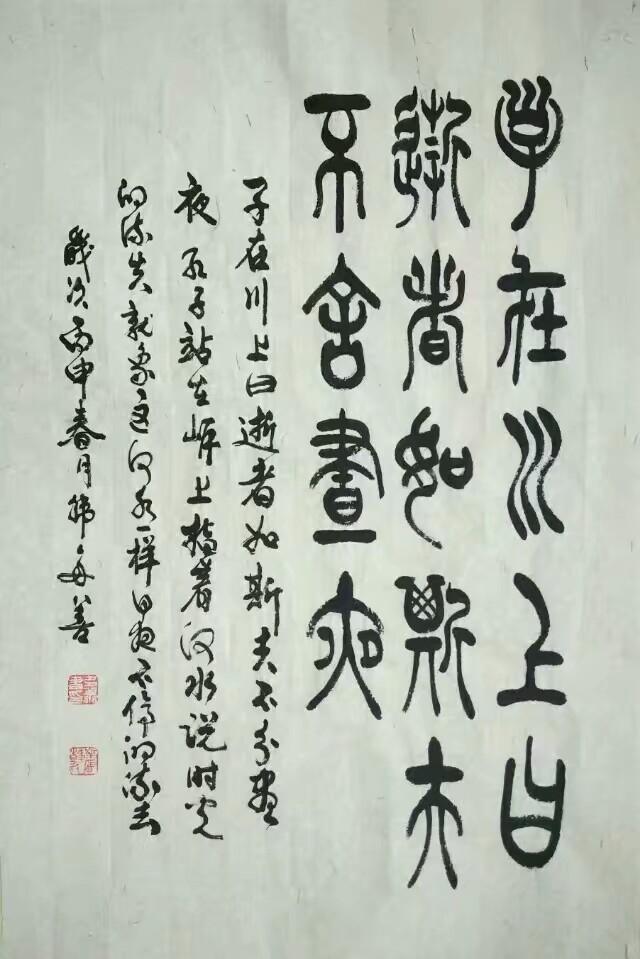 子在川上曰
逝者如斯夫
不舍晝夜
子在川上曰逝者如斯夫不舍昼
夜孔子站在岸上指着河水说时光
的流失就象这河水一样日夜不停的流去
岁次丙申春月韩每善